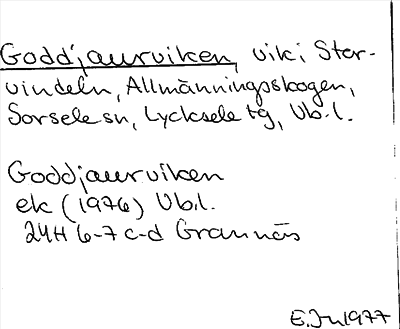 Godd'jaurviken, vik i Stor-
vindeln, Allmänningsskogen,
Sorsele sn, Lycksele tg, Vb.l.
Goddjaurviken
ek (1976) Vb.l.
24H 6-7 c-d Grannäs
E. Jn 1977